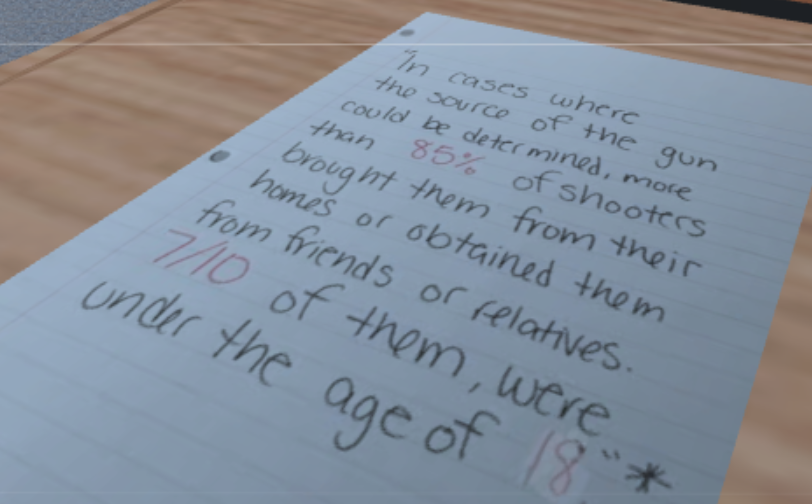 "In cases where
the source of the gun
could be determined, more
than 85% of shooters
brought them from their
homes or obtained them
from friends or relatives.
7/10 of them, were
under the age of 18."*